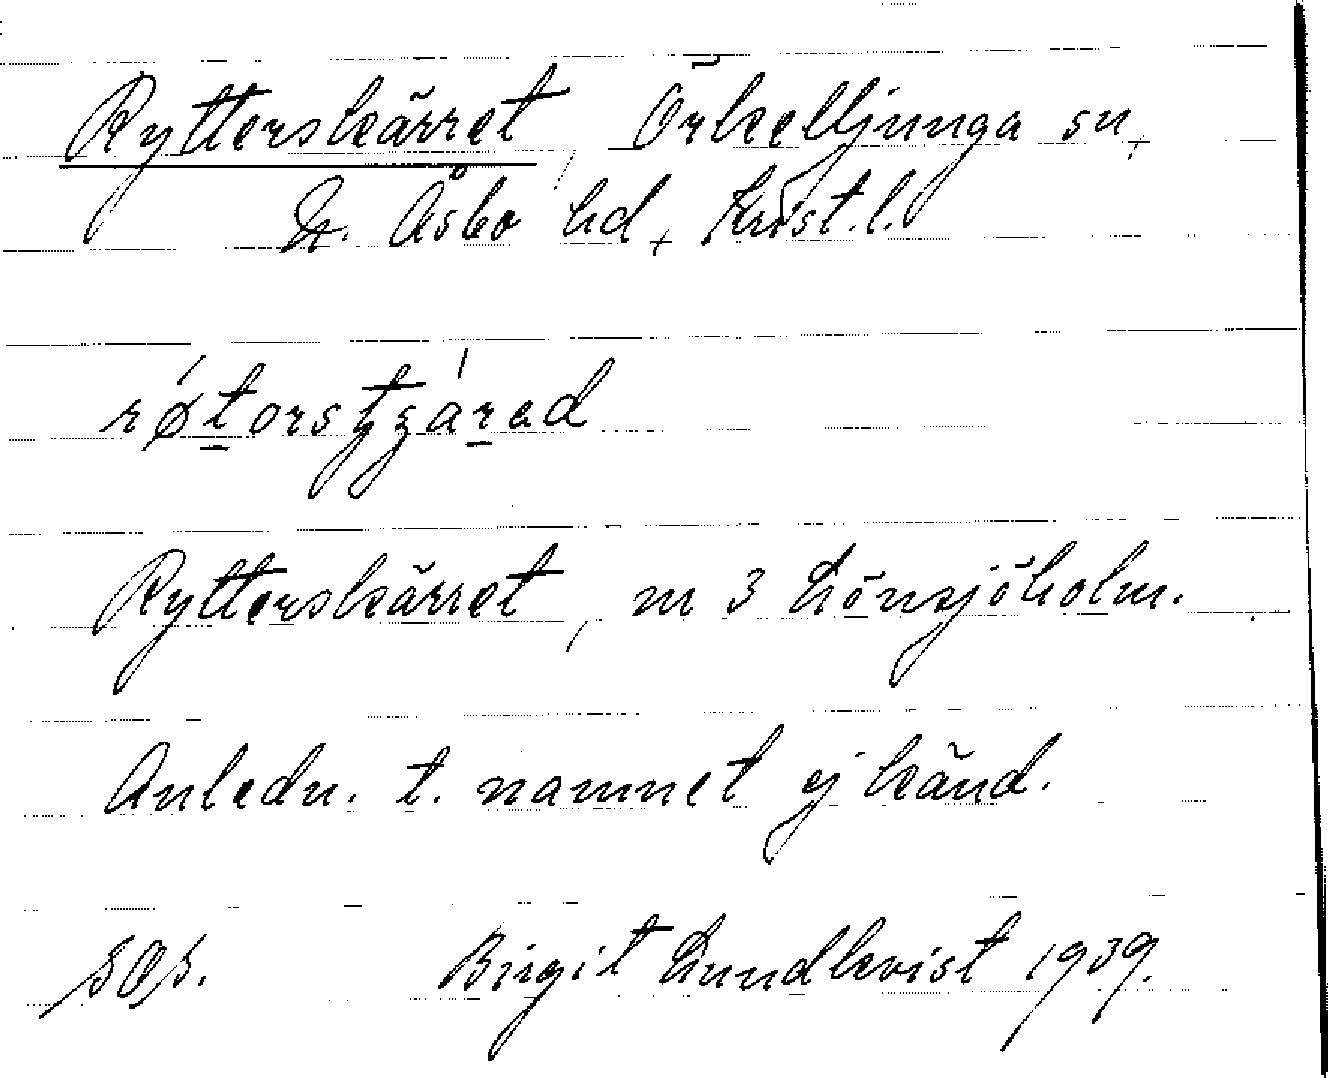 Rytterskärret, Örkelljunga sn,
N. Åsbo hd, Krist.l.
Rytterskärret, m 3 Lönsjöholm.
Anledn. t. namnet ej känd.
Birgit Lundkvist 1939.